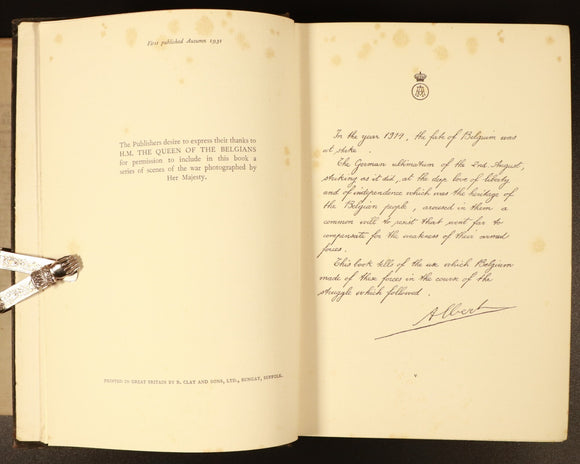 First published Autumn 1931
The Publishers desire to express their thanks to
H.M. THE QUEEN OF THE BELGIANS
for permission to include in this book a
series of scenes of the war photographed by
Her Majesty.
PRINTED IN GREAT BRITAIN BY R. CLAY AND SONS, LTD., BUNGAY, SUFFOLK.
In the year 1914, the fate of Belgium was
at stake.
The German ultimatum of the 2nd August,
striking as it did, at the deep love of liberty
and of independence which was the heritage of
the Belgian people, aroused in them a
common will to resist that went far to
compensate for the weakness of their armed
forces.
This book tells of the use which Belgium
made of these forces in the course of the
struggle which followed.
Albert
v